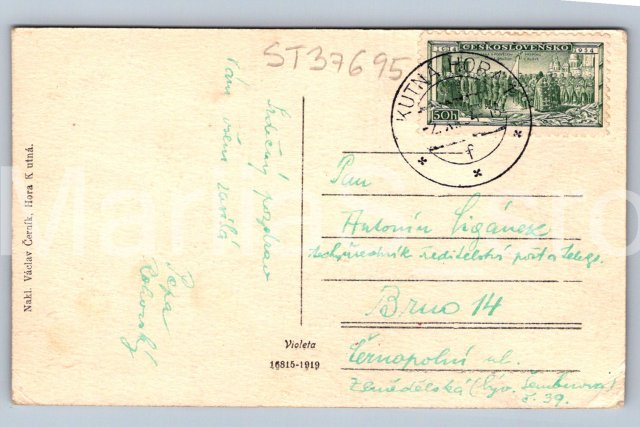 ST37695
1914 ČESKOSLOVENSKO 1934
50h
KUTNÁ HORA
f
Srdečný pozdrav
Vám všem zasílá
Pepa
Nakl. Václav Černík, Hora Kutná.
Violeta
16815-1919
Pan
Antonín Cigánek
tech. úředník ředitelství pošt a telegr.
Brno 14
Černopolní ul.
Zemědělská
č. 39.